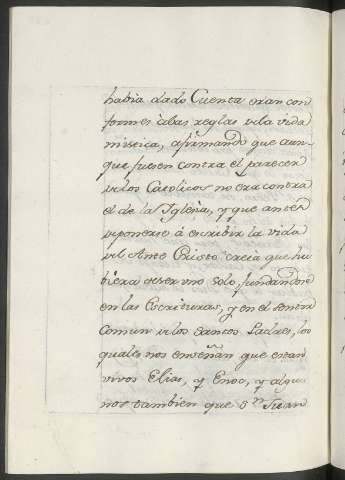 havia dado Cuenta eran con
formes à las reglas de la vida
mistica, afirmando que aun-
que fuesen contra el parecer
de los Catolicos no era contra
el de la Iglesia, y que antes
de ponerse á escribir la vida
del Ante Cristo creia que hu
biera de ser uno solo, fundandose
en las Escrituras, y en el sentir
comun de los Santos Padres, los
quales nos enseñan que estan
vivos Elias, y Enoc, y algu
nos tambien que S.n Juan